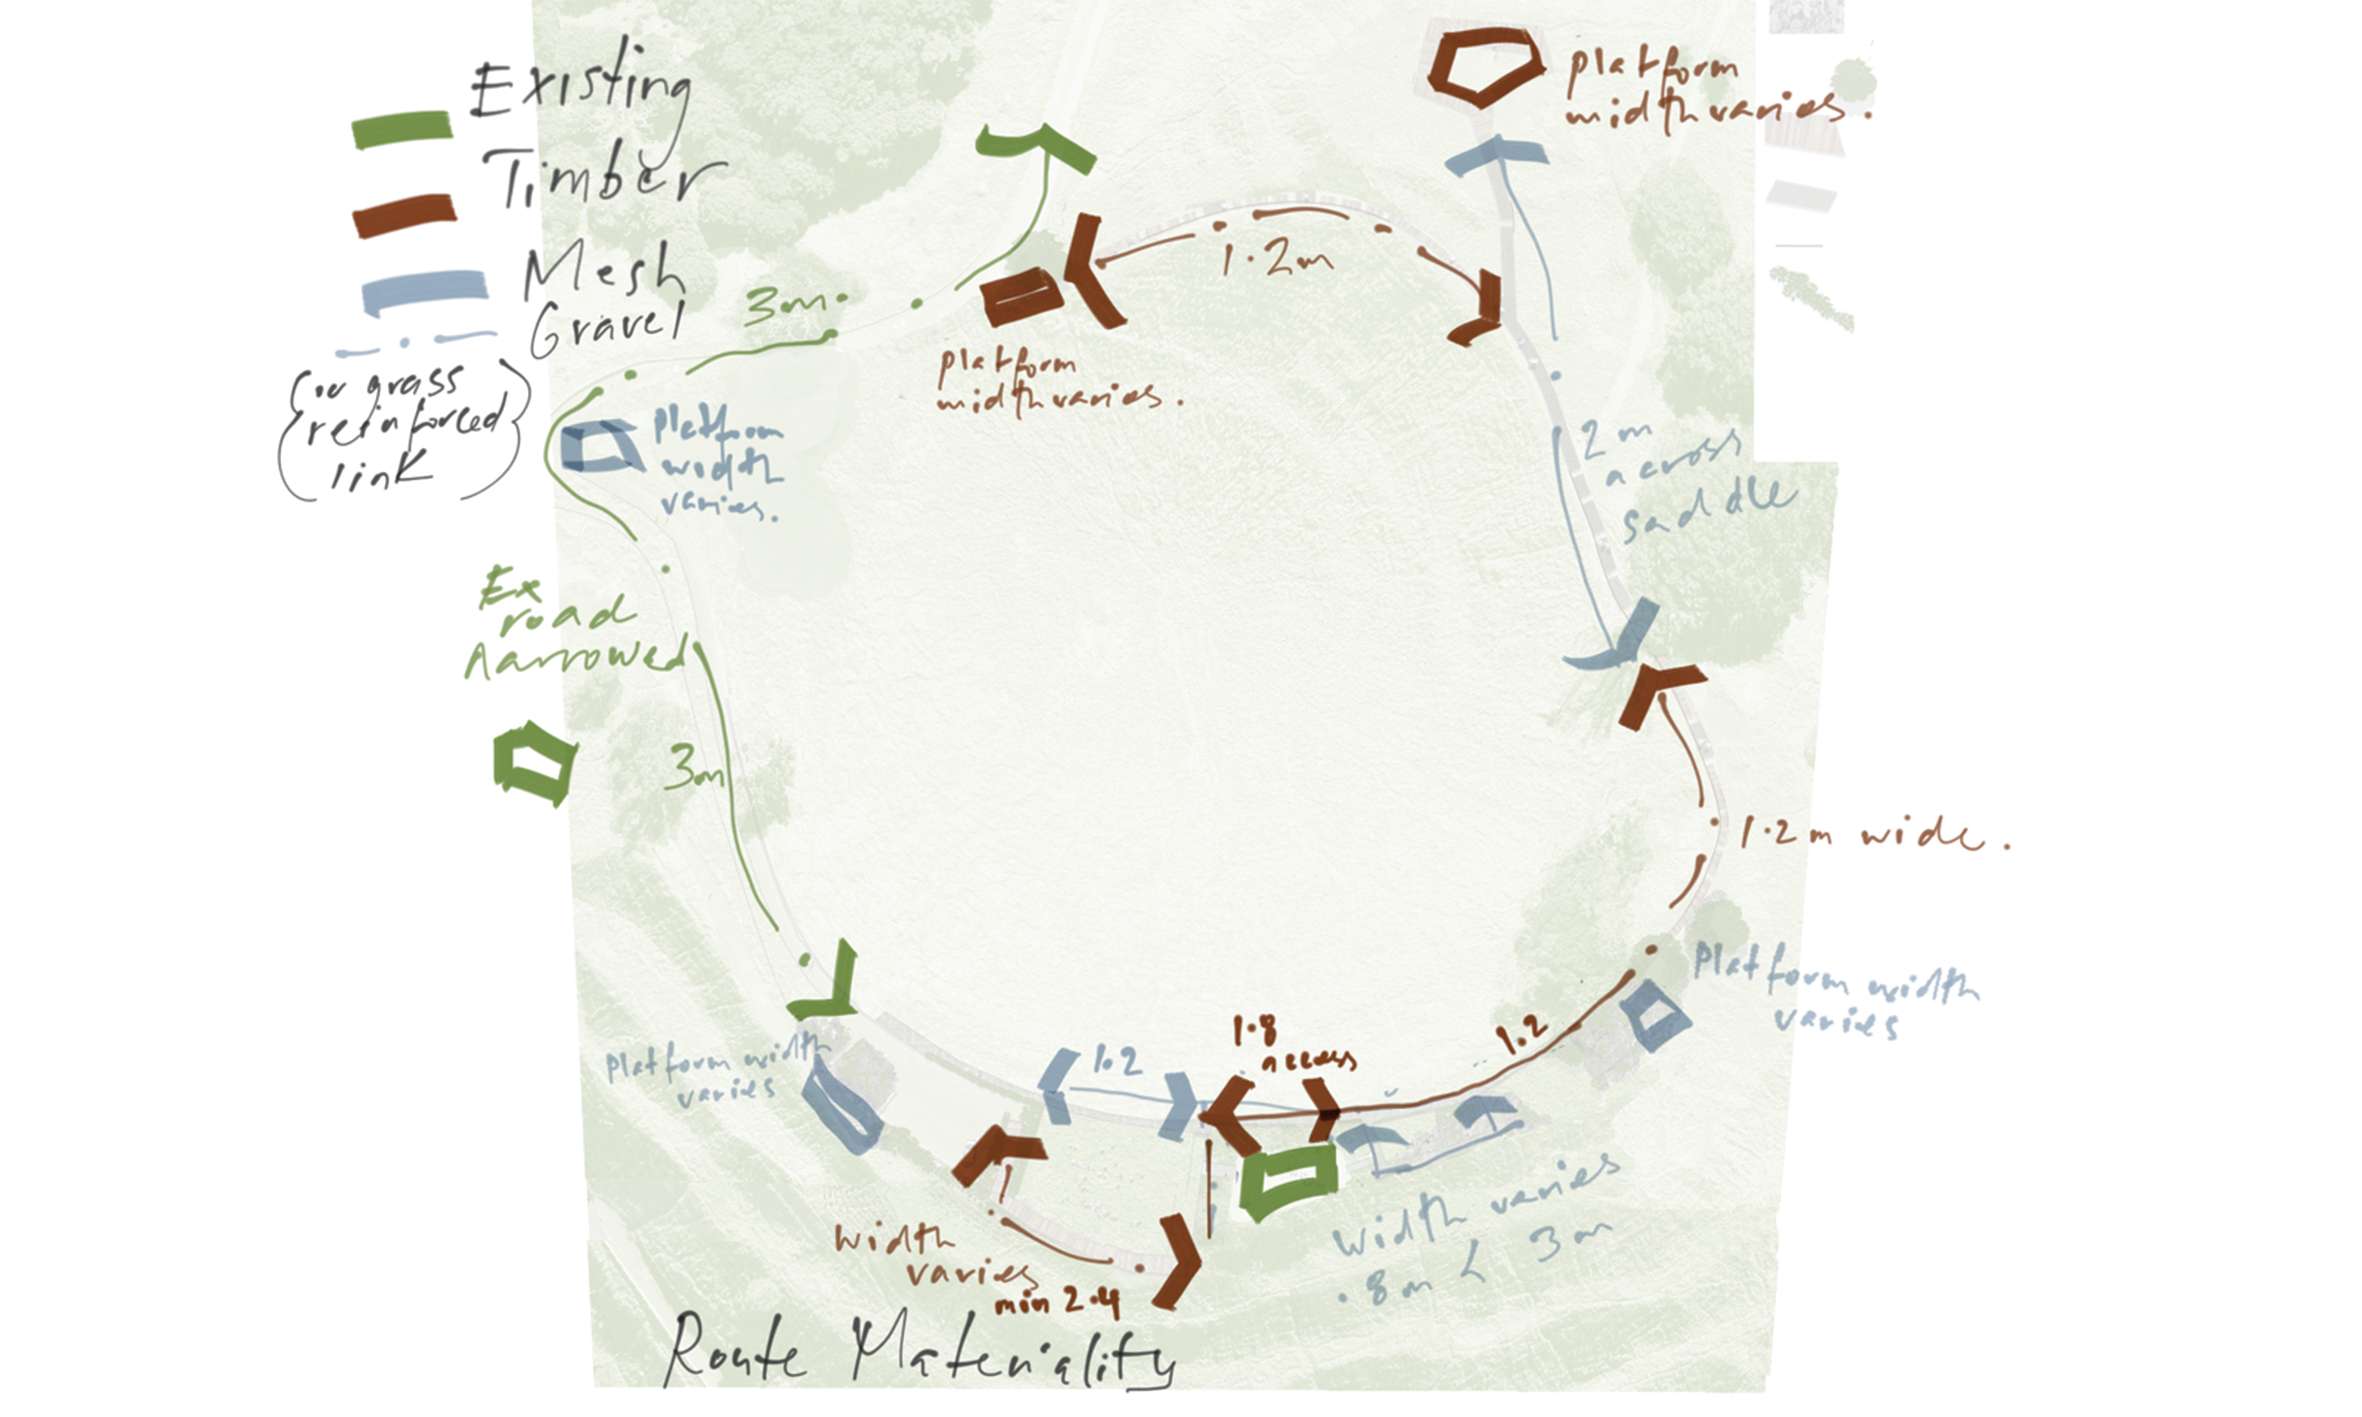 Existing
Timber
Mesh
Gravel
(or grass
reinforced
link)
platform
width varies.
1.2m
3m
platform
width varies.
Platform
width
varies.
2m
across
saddle
Ex
road
narrowed
3m
1.2m wide.
Platform width
varies
1.8
access
1.2
1.2
Platform width
varies
width
varies
min 2.4
Width varies
.8m < 3m
Route Materiality